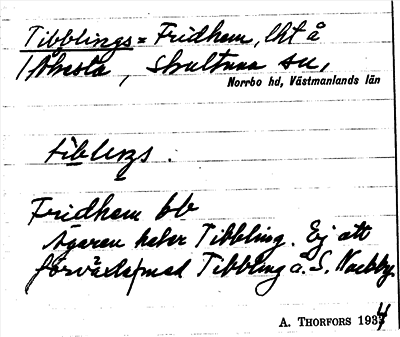 Tibblings = Fridhem, lht å
Åkesta, Skultuna sn,
Norrbo hd, Västmanlands län
tiblıŋs.
Fridhem bb
Ägaren heter Tibbling. Ej att
förväxla med Tibbling å. S. Nackby
A. THORFORS 1934